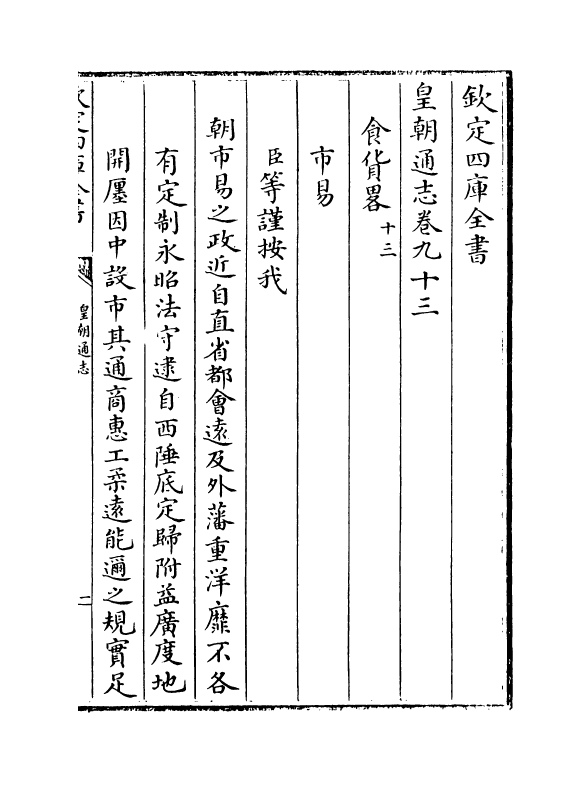 欽定四庫全書
皇朝通志卷九十三
食貨畧十三
市易
臣等謹按我
朝市易之政近自直省都會遠及外藩重洋靡不各
有定制永昭法守逮自西陲底定歸附益廣度地
開廛因中設市其通商惠工柔遠能邇之規實足
欽定四庫全書
皇朝通志
一